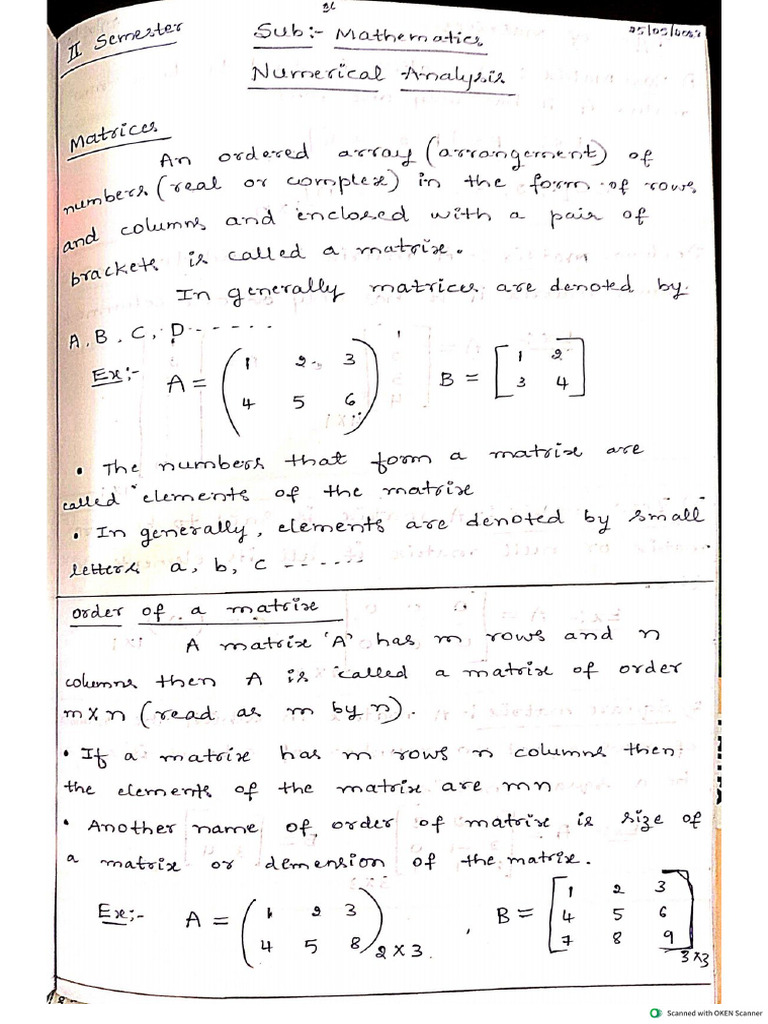 II Semester
Sub:- Mathematics
Numerical Analysis
Matrices
An ordered array (arrangement) of
numbers (real or complex) in the form of rows
and columns and enclosed with a pair of
brackets is called a matrix.
In generally matrices are denoted by
A, B, C, D - - - - -
Ex:- A = ( 1 2 3 B = [ 1 2
4 5 6 ) 3 4 ]
• The numbers that form a matrix are
called elements of the matrix
• In generally, elements are denoted by small
letters a, b, c - - - - - -
order of a matrix
A matrix 'A' has m rows and n
columns then A is called a matrix of order
m×n (read as m by n).
• If a matrix has m rows n columns then
the elements of the matrix are mn
• Another name of order of matrix is size of
a matrix or demension of the matrix.
Ex:- A = ( 1 2 3 , B = [ 1 2 3
4 5 8 ) 2×3 4 5 6
7 8 9 ] 3×3
Scanned with OKEN Scanner